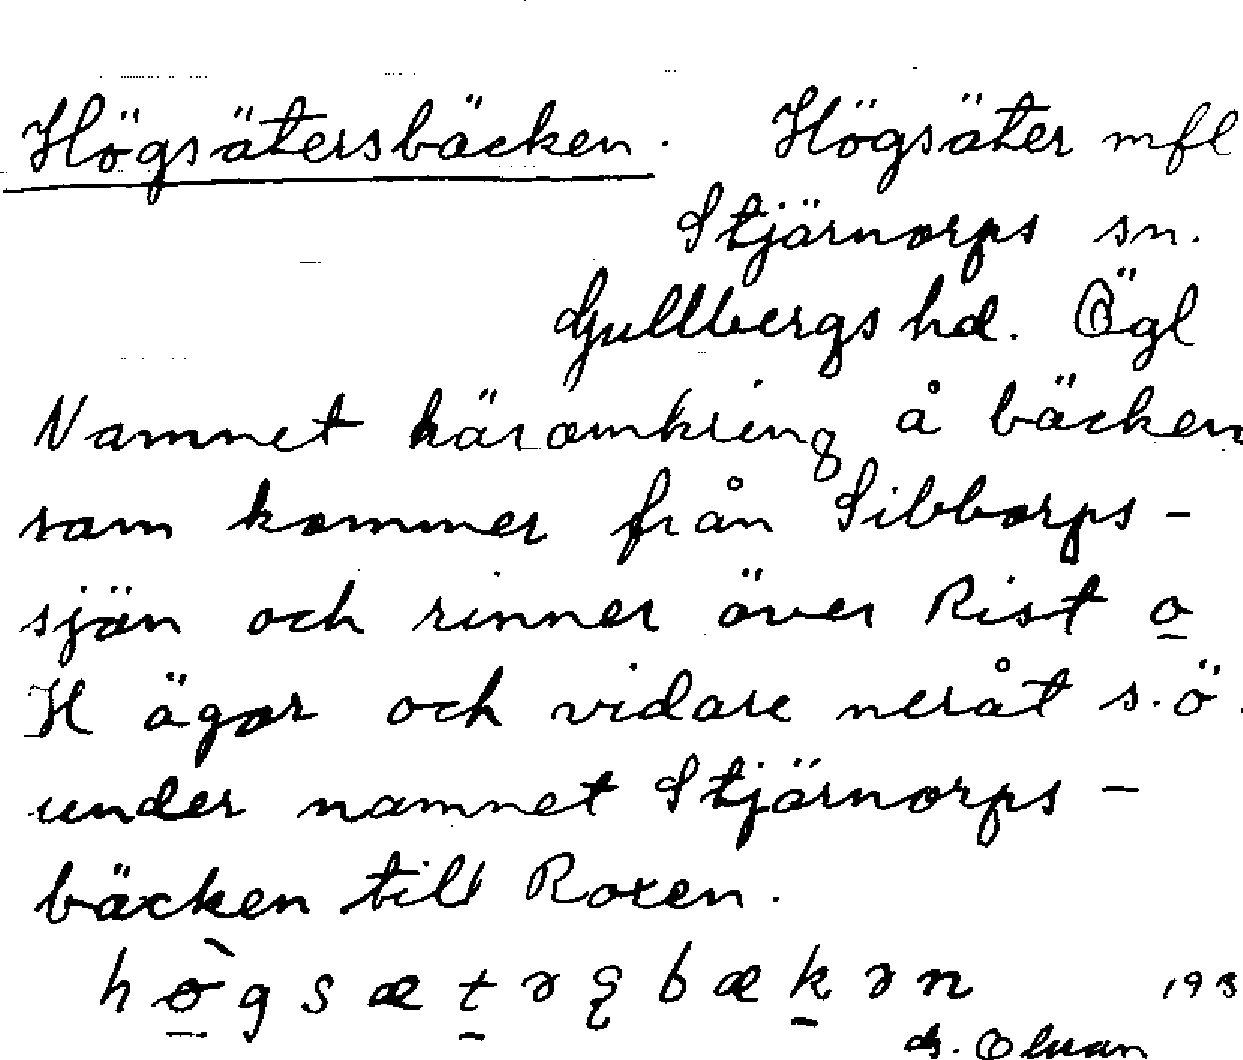 Högsätersbäcken. Högsäter mfl
Stjärnorps sn.
Gullbergs hd. Ögl
Namnet häromkring å bäcken
som kommer från Sibborps-
sjön och rinner över Rist o
H ägor och vidare neråt s.ö.
under namnet Stjärnorps-
bäcken till Roxen.
193